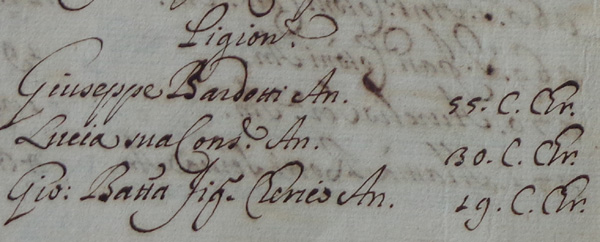 Pigion.
Giuseppe Bardotti An. 55. C. Chr.
Lucia sua Cons. An. 30. C. Chr.
Gio: Batta Fig. Cherico An. 19. C. Chr.